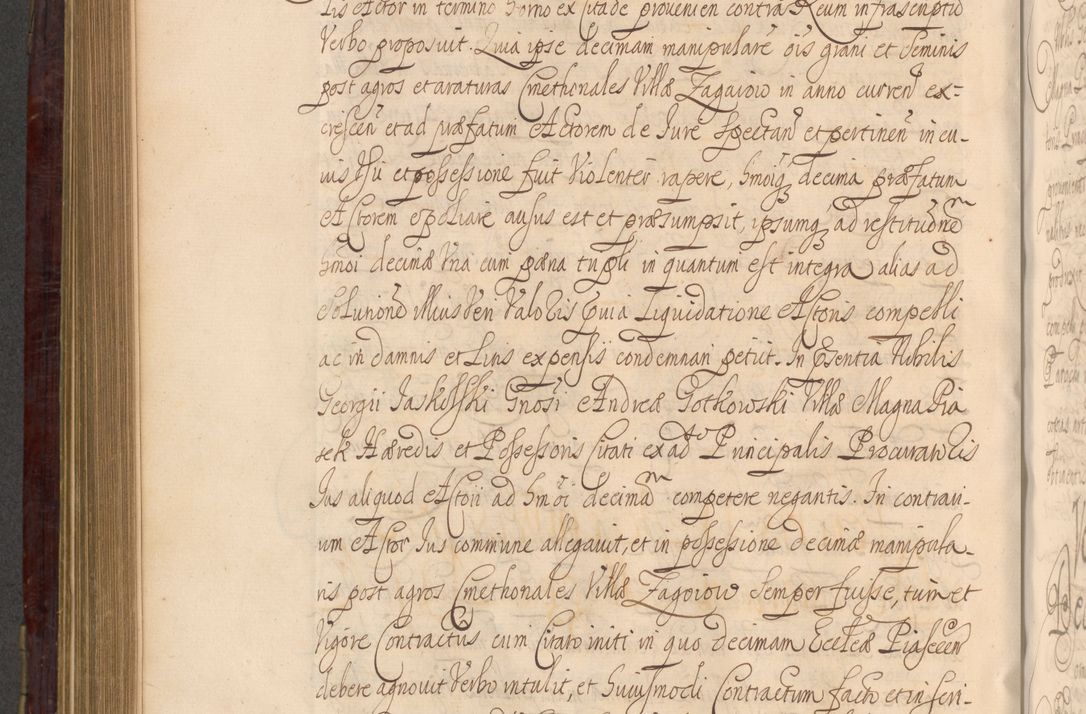 lis Actor in termino horno ex Citãde provenien contra Reum infrascriptũ
Verbo proposuit. Quia ipse decimam manipularẽ õis grani et Seminis
post agros et araturas Cmethonales Villæ Zagaiow in anno curreñ ex-
crescen̄ et ad præfatum Actorem de Iure Spectan̄ et pertinen̄ in cu-
ius Usu et possessione fuit Violenter rapere, hmõiq₃ decima præfatum
Actorem expoliare ausus est et præsumpsit, ipsumq₃ ad restitu͠onem
hmõi decimæ Una cum pæna tripli in quantum est integra, alias ad
Solutionẽ illius Veri Valoris Quia Liquidatione Actoris compelli
ac in damnis et Litis expensis condemnari petiit. In P͠sentia Nobilis
Georgii Jaskolski G͠nosi Andreæ Gotkowski Villæ Magna Pia
sek Hæredis et Possessoris Citati ex adº Principalis Procuratoris
Ius aliquod Actori ad hmõi decimam competere negantis. In contrari-
um Actor Ius commune allegavit, et in possessione decimæ manipula-
ris post agros Cmethonales Villæ Zagoiow Semper fuisse, tum et
Vigore Contractus cum Citato initi in quo decimam Eccleæ Piasecen
debere agnovit Verbo intulit, et huiusmodi Contractum facto et in scri-